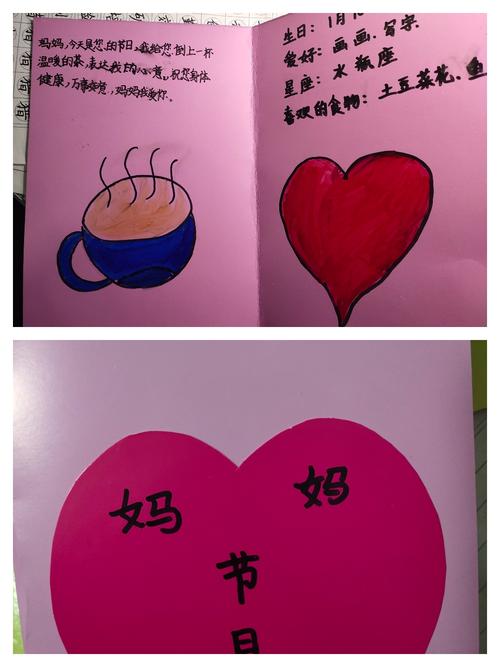 妈妈,今天是您的节日,我给您倒上一杯
温暖的茶,表达我的心意,祝您身体
健康,万事如意,妈妈我爱你。
生日:1月1
爱好:画画、写字
星座:水瓶座
喜欢的食物:土豆菜花、鱼
妈 妈
节
日